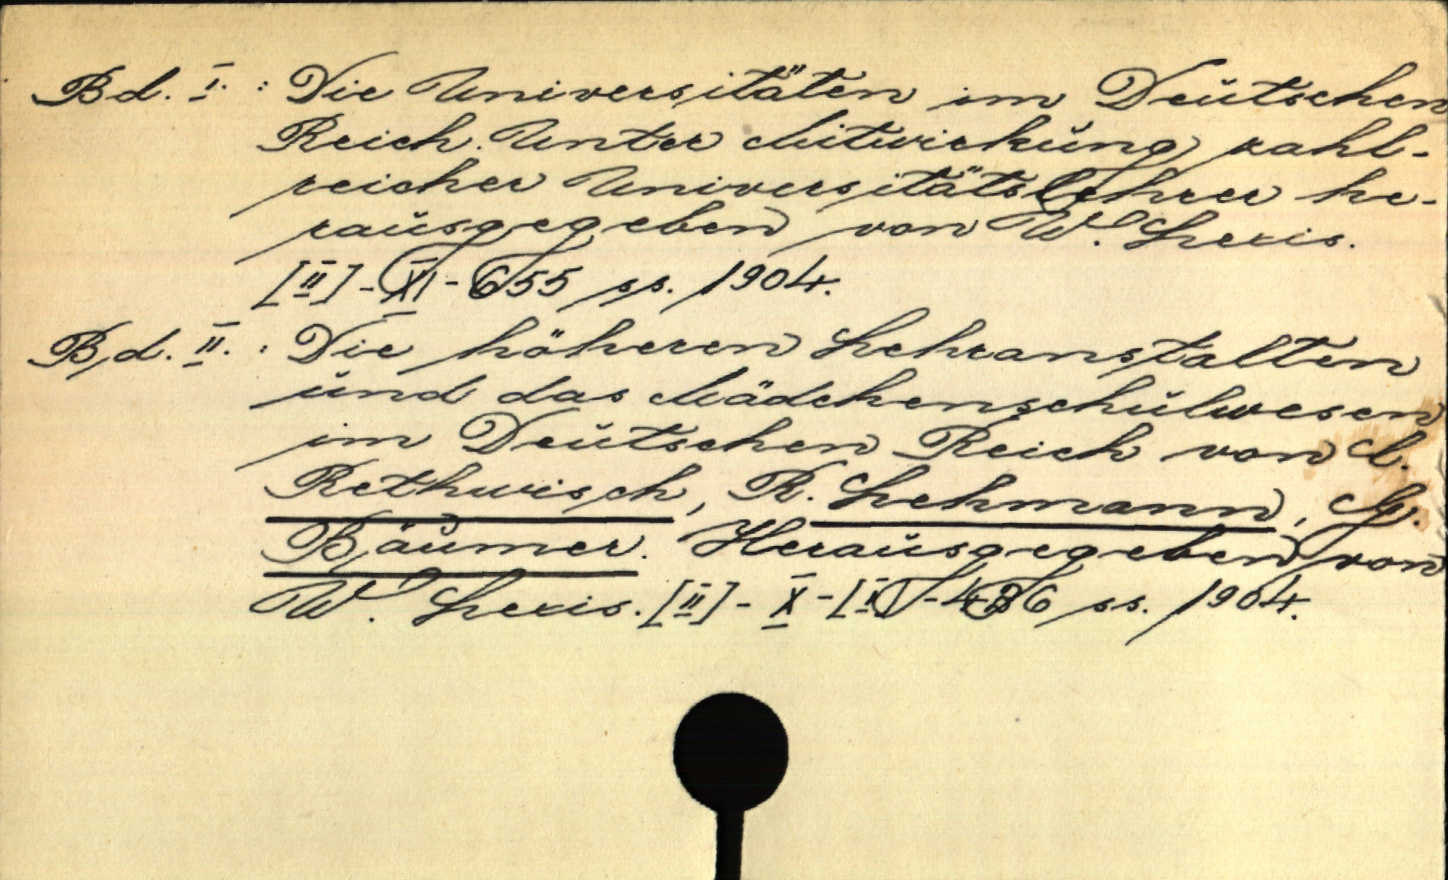 Bd. I. : Die Universitäten im Deutschen
Reich. Unter Mitwirkung zahl-
reicher Universitätslehrer he-
rausgegeben von W. Lexis.
[II]-XI-655 ss. 1904.
Bd. II. : Die höheren Lehranstalten
und das Mädchenschulwesen
im Deutschen Reich von C.
Rethwisch, R. Lehmann, G.
Bäumer. Herausgegeben von
W. Lexis. [II]-X-[II]-436 ss. 1904.